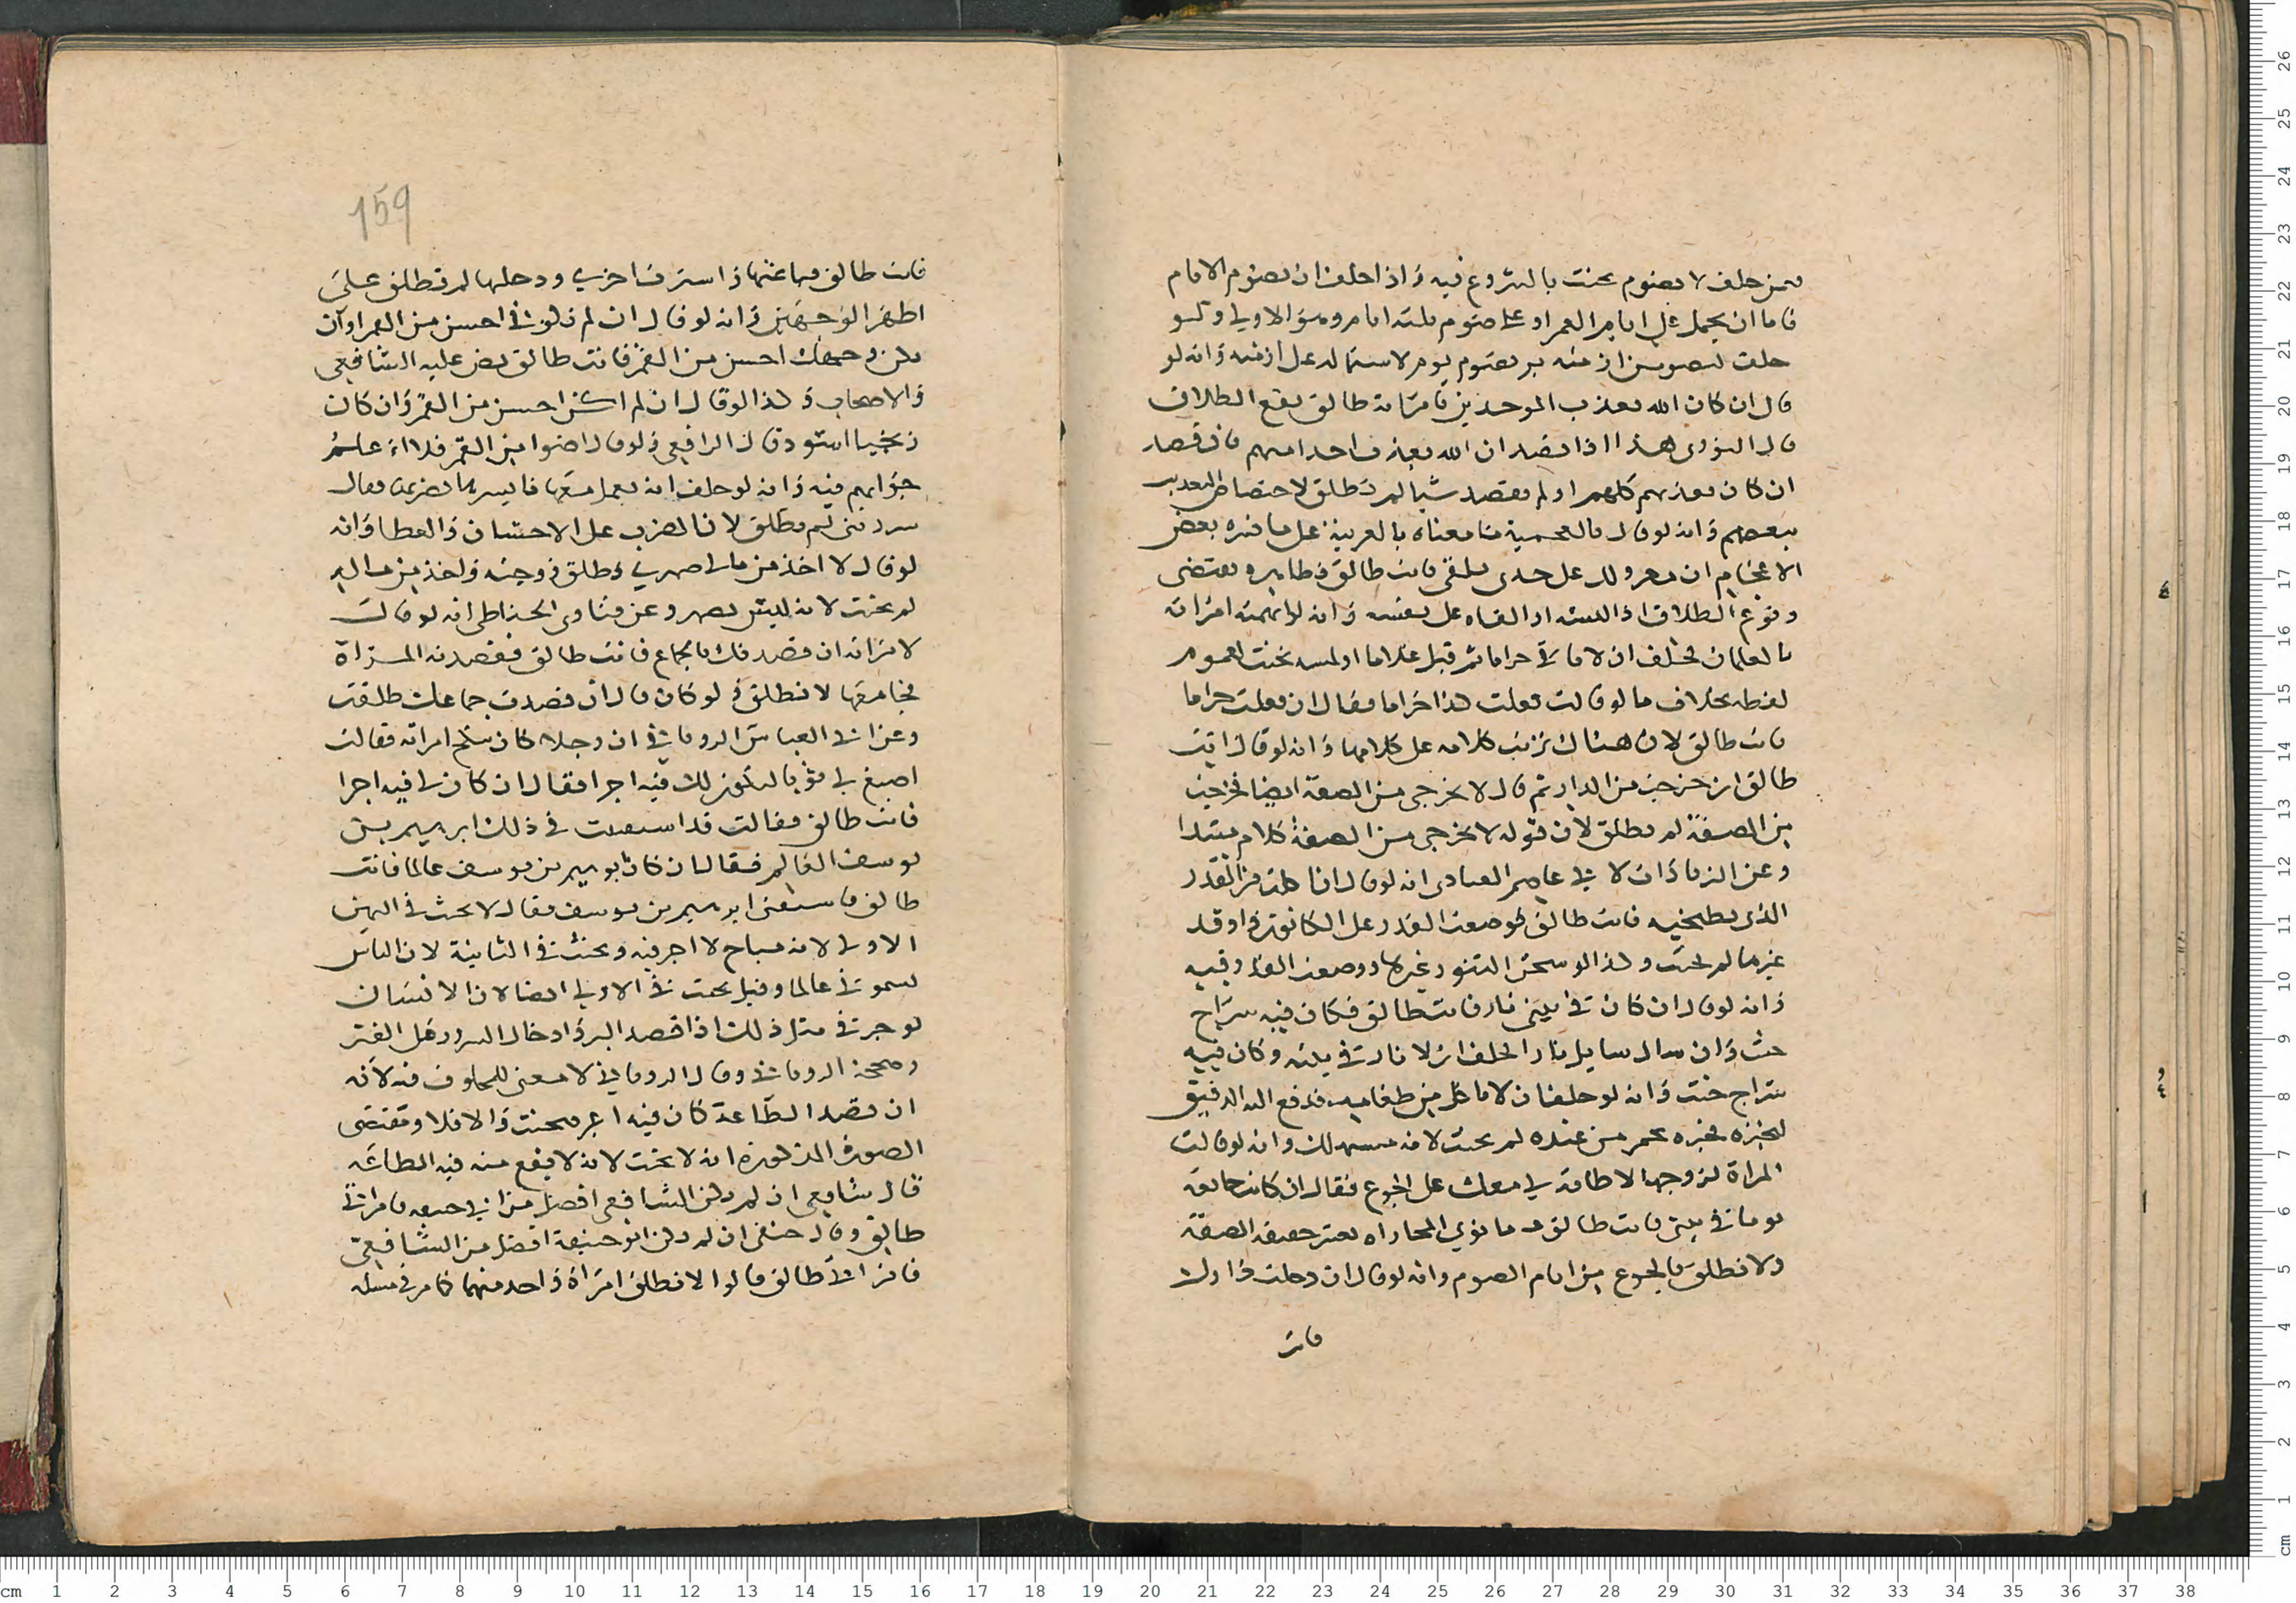 فمن حلف لا يصوم يحنث بالشروع فيه وإذا حلف ان يصوم الايام
فاما ان يحمل على ايام العمر او على صوم ثلثه ايام وهو الاولى و لو
حلف ليصومن ازمنه بر بصوم يوم لاشتماله على ازمنه وانه لو
قال ان كان الله يعذب الموحدين فامراته طالق يقع الطلاق
قال النووى هذا اذا قصد ان الله يعذب احدا منهم فان قصد
ان كان يعذبهم كلهم او لم يقصد شيا لم تطلق لاختصاص التعذيب
ببعضهم وانه لو قال بالعجمية ما معناه بالعربية على ما فسره بعض
الاعجام ان على فانت طالق فظاهره يقتضى
وقوع الطلاق اذا او القاه على نفسه وانه لو اتهمته امراته
بالغلمان فحلف ان لا ياتى حراما ثم قبل غلاما او لمسه يحنث لعموم
لفظه بخلاف ما لو قالت فعلت هذا حراما فقال ان فعلت حراما
فانت طالق لان هناك ترتب كلامه على كلامها وانه لو قال انت
طالق ان خرجت من الدار ثم قال لا تخرجى من الصفة ايضا فخرجت
من الصفة لم تطلق لان قوله لا تخرجى من الصفة كلام مبتدا
وعن الزيادات لابى عاصم العبادى انه لو قال ان اكلت من القدر
الذى تطبخيه فانت طالق فوضعت القدر على الكانون واوقد
غيرها لم يحنث وكذا لو سجر التنور غيرها ووضعت القدر فيه
وانه لو قال ان كان فى بيتى نار فانت طالق فكان فيه سراج
حنث وان سال سايل نارا فحلف ان لا نار فى بيته وكان فيه
سراج حنث وانه لو حلف ان لا ياكل من طعامه فدفع اليه الدقيق
ليخبزه فخبزه بخمير من عنده لم يحنث لانه مستهلك وانه لو قالت
المراة لزوجها لا طاقة لى معك على الجوع فقال ان كان جايعة
يوما فى بيتى فانت طالق ما نوى المجازاه يعتبر حقيقة الصفة
ولا تطلق بالجوع من ايام الصوم وانه لو قال ان دخلت دارك
فانت
159
فانت طالق فباعتها واشترت اخرى ودخلها لم تطلق على
اظهر الوجهين وانه لو قال ان لم تكونى احسن من القمر او ان
يكن وجهك احسن من القمر فانت طالق نص عليه الشافعى
والاصحاب وكذا لو قال ان لم اكن احسن من القمر وان كان
زنجيا اسود قال الرافعى ولو قال اضوا من القمر فلا اعلم
جوابهم فيه وانه لو حلف انه يعمل معها فقال
لم تطلق لان الضرب على الاحسان والعطا وانه
لو قال لا اخذ من مال صهرى وطلق زوجته واخذ من ماله
لم يحنث لانه ليس بصهر وعن فتاوى الحناطى انه لو قال
لامراته ان قصدتك بالجماع فانت طالق فقصدته المراة
فجامعها لا تطلق ولو كان قال ان قصدت جماعك طلقت
وعن ابى العباس الرويانى ان رجلا كان امراته فقالت
اصبغ لى ثوبا ليكون لك فيه اجر افقال ان كان لى فيه اجرا
فانت طالق فقالت قد استفتيت فى ذلك ابراهيم بن
يوسف العالم فقال ان كان ابراهيم بن يوسف عالما فانت
طالق فاستفتى ابراهيم بن يوسف فقال لا يحنث فى اليمين
الاولى لانه مباح لا اجر فيه ويحنث فى الثانية لان الناس
يسمونى عالما وقيل يحنث فى الاولى ايضا لان الانسان
يوجر فى مثل ذلك اذا قصد البر وادخال السرور
وصححه الرويانى وقال الرويانى لا معنى للخلاف فيه لانه
ان قصد الطاعة كان فيه اجر فيحنث والا فلا ومقتضى
الصورة المذكورة انه لا يحنث لانه لا يقع منه فيه الطاعة
قال شافعى ان لم يكن الشافعى افضل من ابى حنيفة فامراتى
طالق وقال حنفى ان لم يكن ابو حنيفة افضل من الشافعى
فامراتى طالق قالوا لا تطلق امراة واحد منهما كما مر فى مسئلة